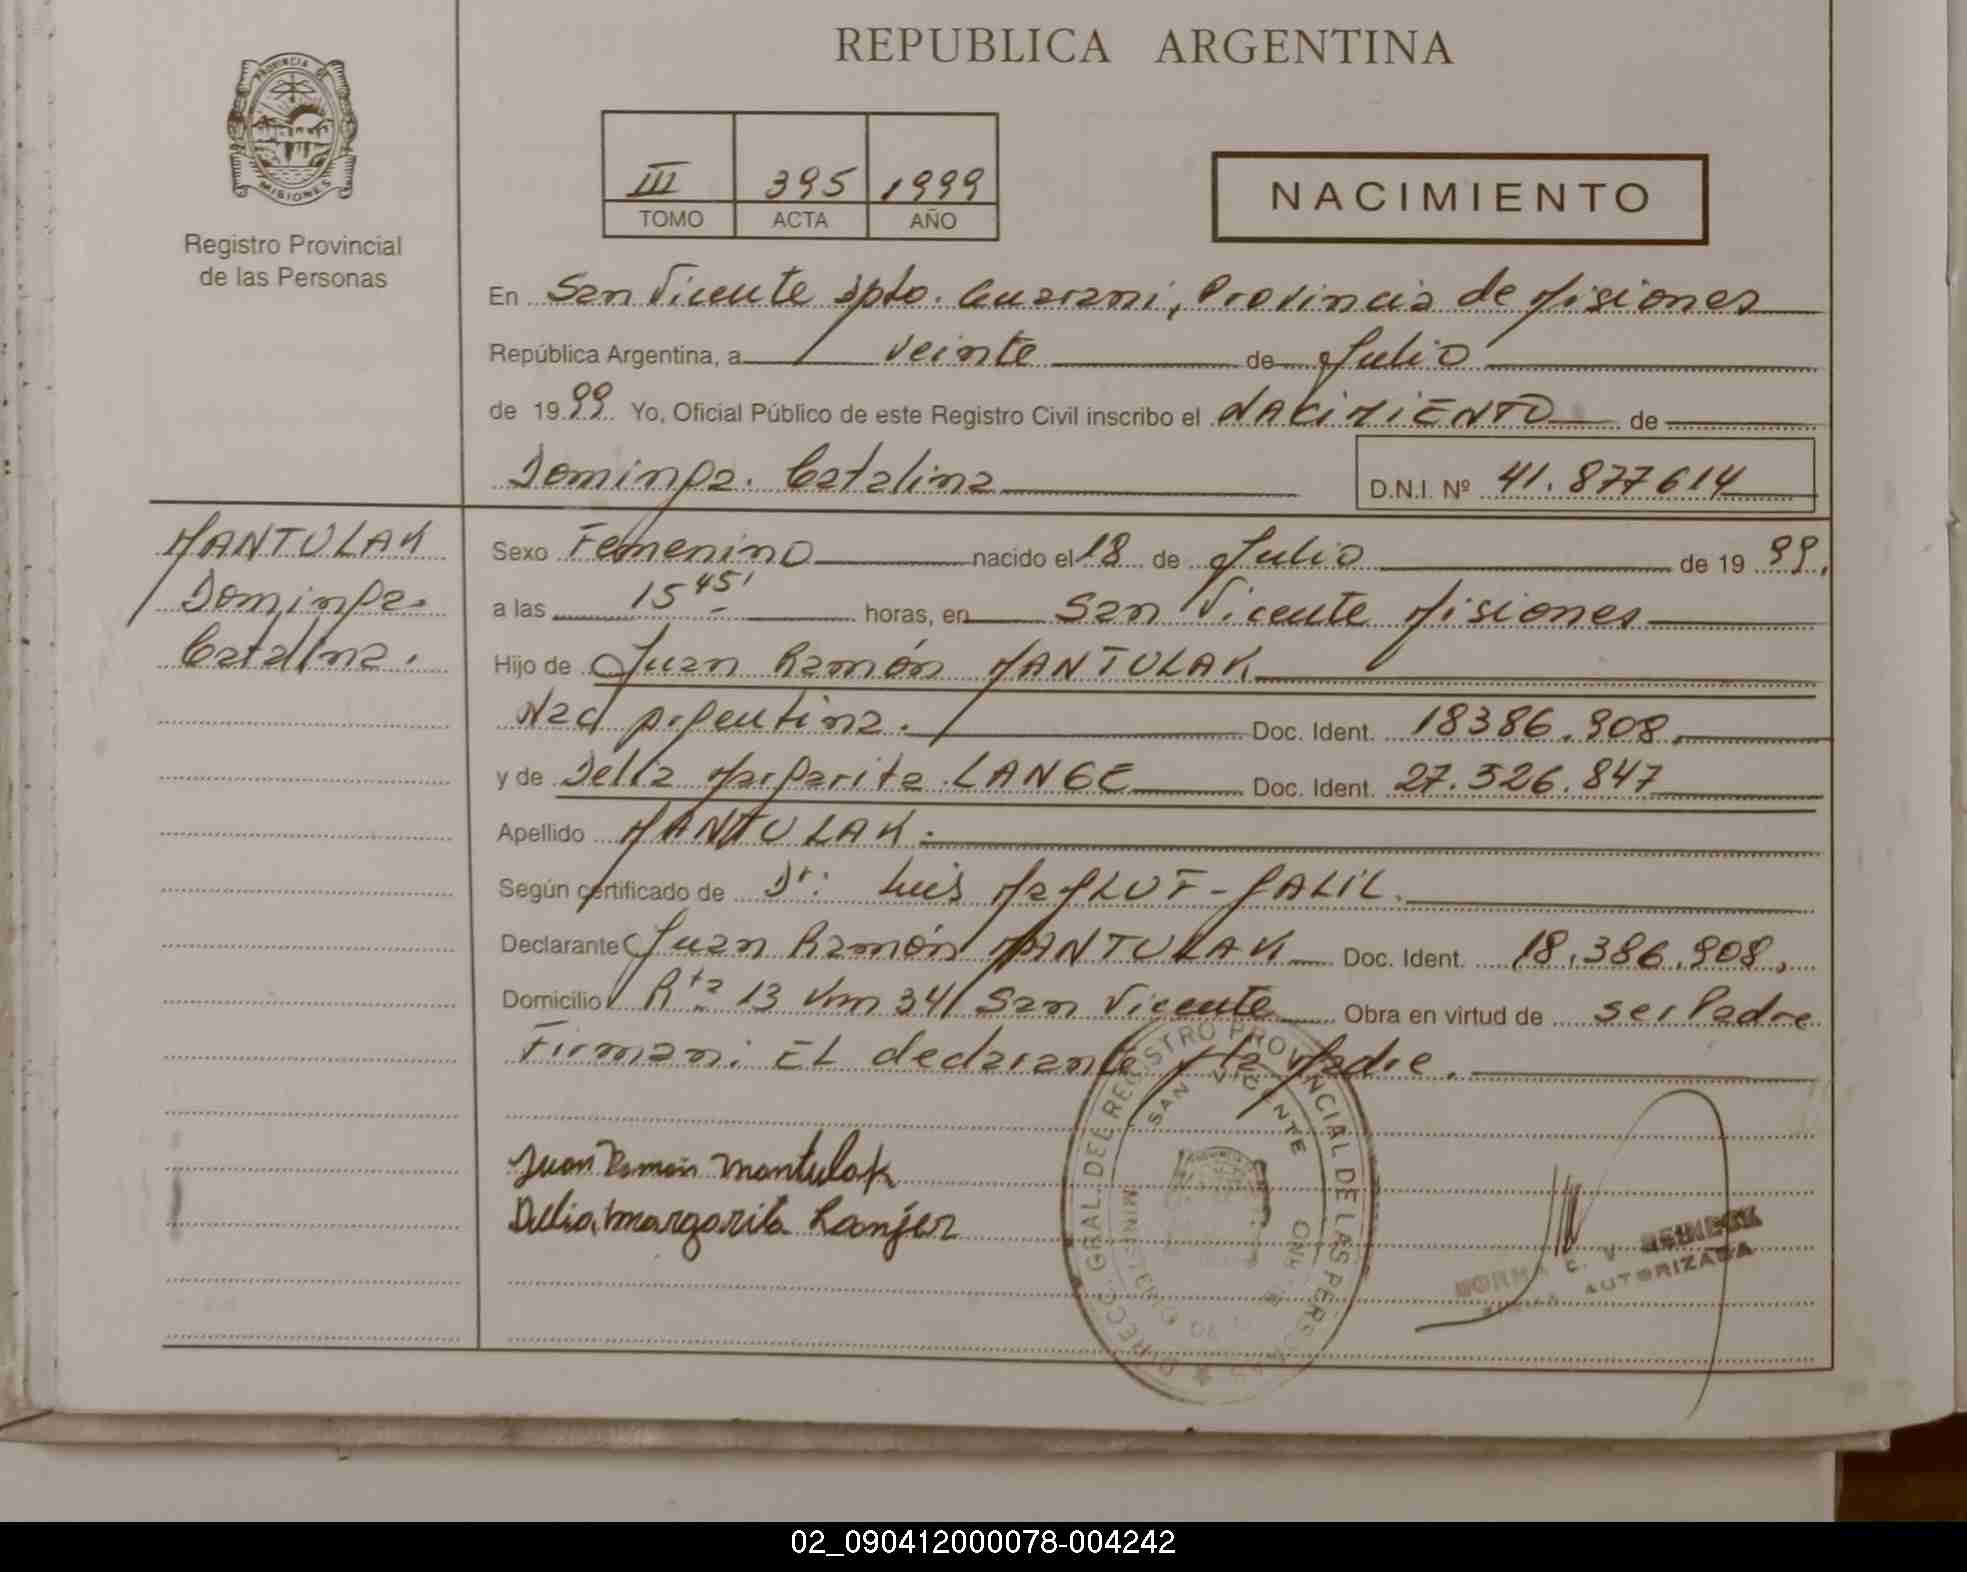 REPUBLICA ARGENTINA
PROVINCIA DE
MISIONES
Registro Provincial
de las Personas
III 395 1999
TOMO ACTA AÑO
NACIMIENTO
En San Vicente Dpto. Guarani, Provincia de Misiones
República Argentina, a veinte de Julio
de 1999 Yo, Oficial Público de este Registro Civil inscribo el NACIMIENTO de
Dominga. Catalina D.N.I. Nº 41.877614
MANTULAK
Dominga.
Catalina.
Sexo Femenino nacido el 18 de Julio de 1999.
a las 15 45' horas, en San Vicente Misiones
Hijo de Juan Ramón MANTULAK
Nac Argentina. Doc. Ident. 18386.908.
y de Delia Margarita LANGE Doc. Ident. 27.526.847
Apellido MANTULAK.
Según certificado de Dr. Luis MaGLUF-GALIL.
Declarante Juan Ramón MANTULAK Doc. Ident. 18.386.908.
Domicilio Rta 13 Km 341 San Vicente Obra en virtud de ser Padre
Firman: EL declarante y la Madre.
Juan Ramon Mantulak
Delia margarita Lanjer
DIRECC. GRAL. DEL REGISTRO PROVINCIAL DE LAS PERSONAS
SAN VICENTE
NORMA C. V. REINECK
FIRMA AUTORIZADA
02_090412000078-004242